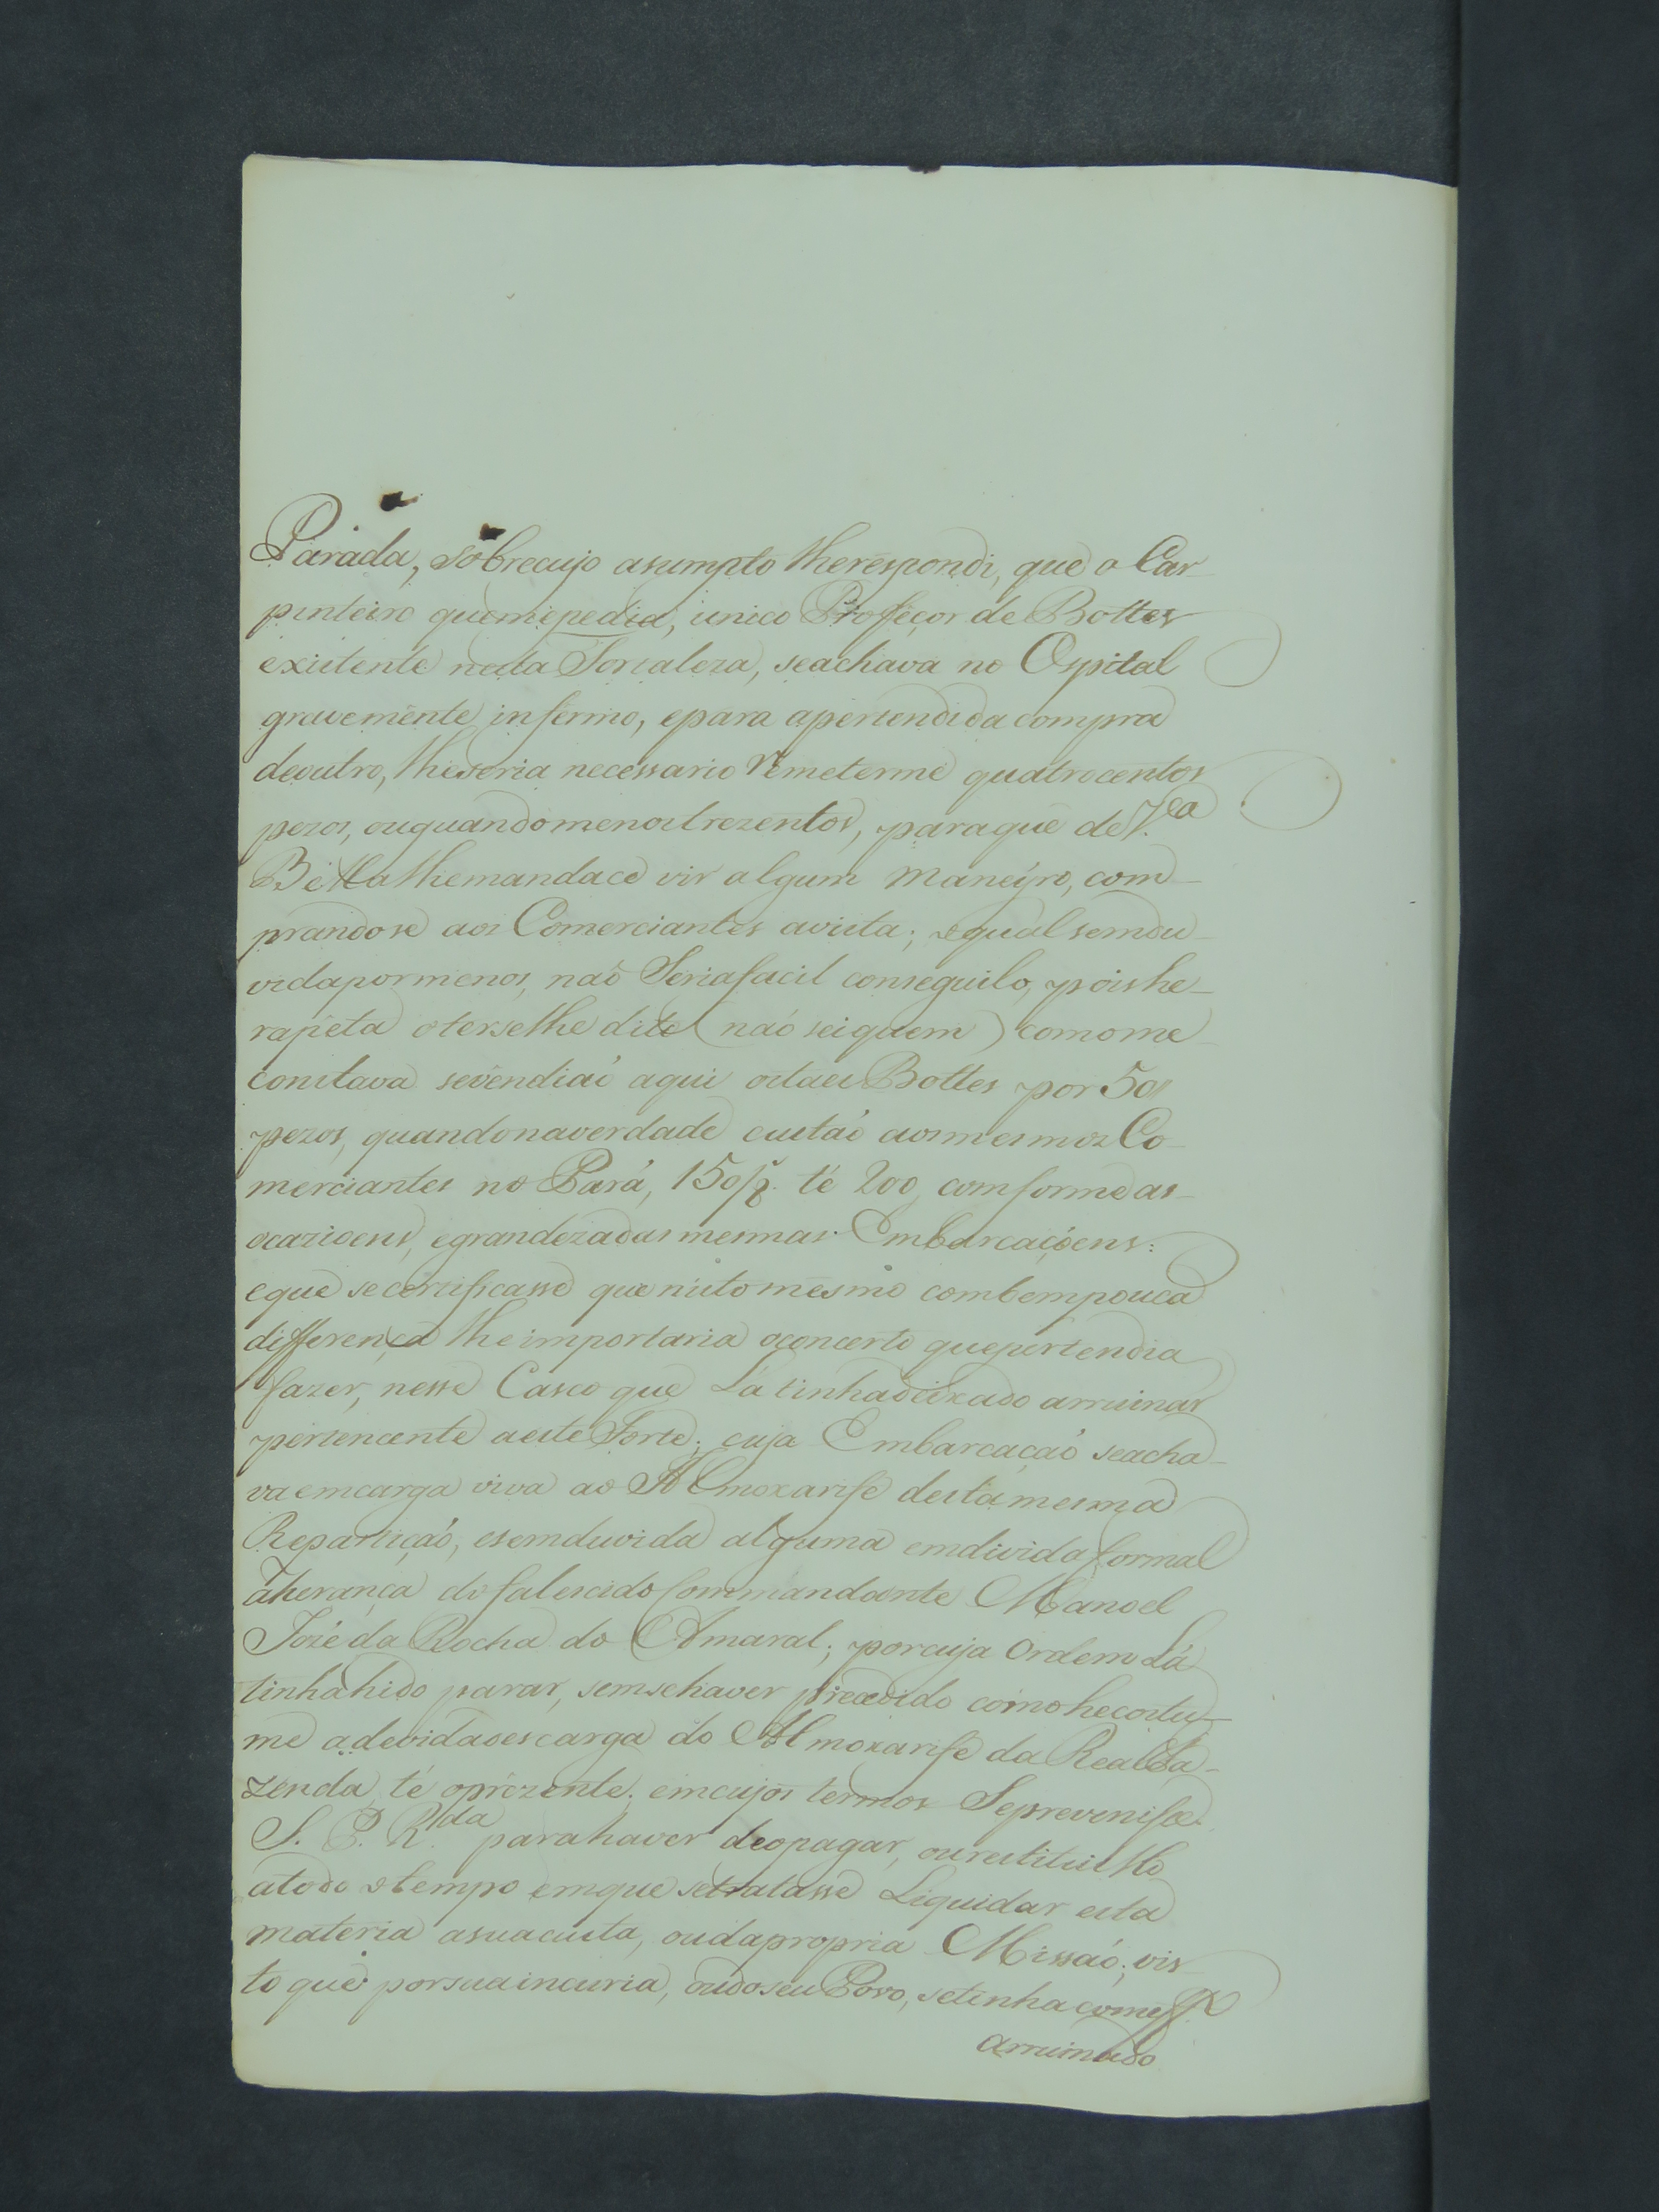 Parada, sobrecujo asumpto lherespondi, que o Car-
pinteiro quemepedia, unico Profeçor de Bottes
existente nesta Fortaleza, seachava no Ospital
gravemente infermo, epara apertendida compra
deoutro, lheseria necessario Remeterme quatrocentos
pezos, ouquandomenostrezentos, paraque de V.ª
Bella lhemandace vir algum Maneyro, com-
prandose aos Comerciantes avista; oqual semdu-
vidapormenos, naõ Seriafacil conseguilo, pois he-
rapeta oterselhe dito (naõ seiquem) comome
constava sevendiaõ aqui ditas Bottes por 50
pezos, quandonaverdade custaõ aosmesmos Co-
merciantes no Pará, 150 té 200, comforme as
ocazioens, egrandezadasmesmas Embarcaçoens:
eque secertificasse que nistomesmo combempouca
differença lheimportaria oconcerto quepertendia
fazer, nesse Casco que Látinhadeixado arruinar
pertencente aeste Forte; cuja Embarcaçaõ seacha-
va emcarga viva ao Almoxarife destamesma
Repartiçaõ, esemduvida alguma emdivida formal
áherança do falescido Commandante Manoel
Jozé da Rocha do Amaral; porcuja Ordem Lá
tinhahido parar, semsehaver precedido comohecostu-
me adevidadescarga do Almoxarife da Real Fa-
zenda té oprezente; emcujos termos Seprevenisse
S. P. R.da parahaver deopagar, ourestituilo
atodo otempo emque setratasse Liquidar esta
materia asuacusta, oudapropria Missaõ; vis-
to que porsuaincuria, oudoseu Povo, setinha
arruinado